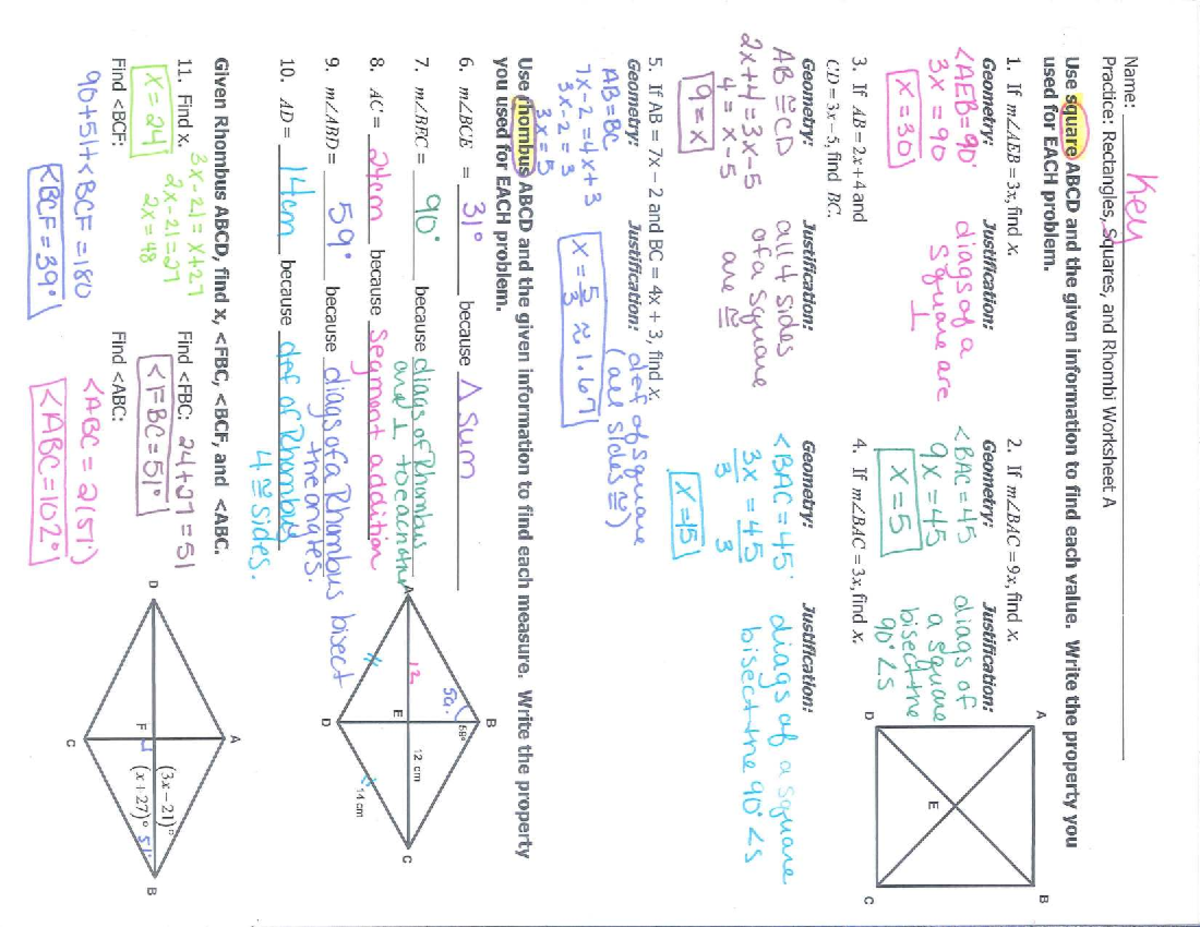 Name: Key
Practice: Rectangles, Squares, and Rhombi Worksheet A
Use square ABCD and the given information to find each value. Write the property you
used for EACH problem.
1. If m∠AEB = 3x, find x.
Geometry: Justification:
<AEB=90° diags of a
3x = 90 square are
x = 30 ⊥
2. If m∠BAC = 9x, find x.
Geometry: Justification:
<BAC = 45 diags of
9x = 45 a square
x = 5 bisect the
90° ∠s
A
B
E
D
C
3. If AB = 2x+4 and
CD = 3x−5, find BC.
Geometry: Justification:
AB ≅ CD all 4 sides
2x+4 = 3x-5 of a square
4 = x-5 are ≅
9 = x
4. If m∠BAC = 3x, find x.
Geometry: Justification:
<BAC = 45° diags of a square
3x = 45 bisect the 90° ∠s
3 3
x = 15
5. If AB = 7x − 2 and BC = 4x + 3, find x.
Geometry: Justification: def of square
AB = BC (all sides ≅)
7x-2 = 4x+3
3x-2 = 3
3x = 5
x = 5/3 ≈ 1.67
Use rhombus ABCD and the given information to find each measure. Write the property
you used for EACH problem.
6. m∠BCE = 31° because △ Sum
7. m∠BEC = 90° because diags of Rhombus
are ⊥ to each other
8. AC = 24cm because segment addition
9. m∠ABD = 59° because diags of a Rhombus bisect
the angles.
10. AD = 14cm because def of Rhombus
4 ≅ sides.
B
59° 59°
A
12
E
12 cm
C
14 cm
D
Given Rhombus ABCD, find x, <FBC, <BCF, and <ABC.
11. Find x. 3x-21 = x+27
2x-21 = 27
2x = 48
x = 24
Find <FBC: 24+27 = 51
<FBC = 51°
Find <BCF:
90+51+<BCF = 180
<BCF = 39°
Find <ABC:
<ABC = 2(51°)
<ABC = 102°
A
D
F
(3x − 21)°
(x + 27)° 51°
B
C